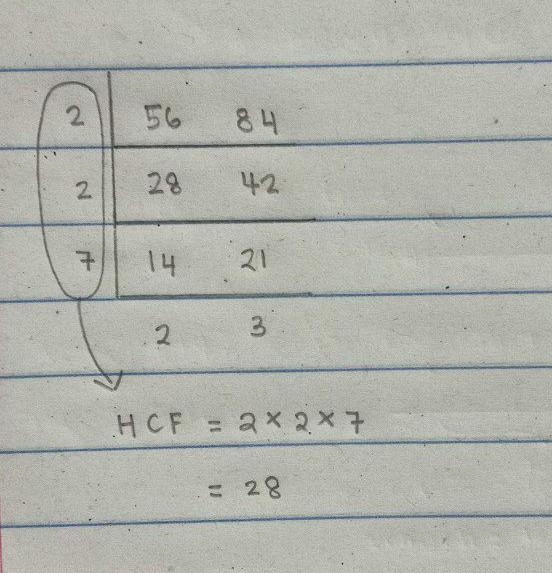 2 56 84
2 28 42
7 14 21
2 3
HCF = 2 × 2 × 7
= 28